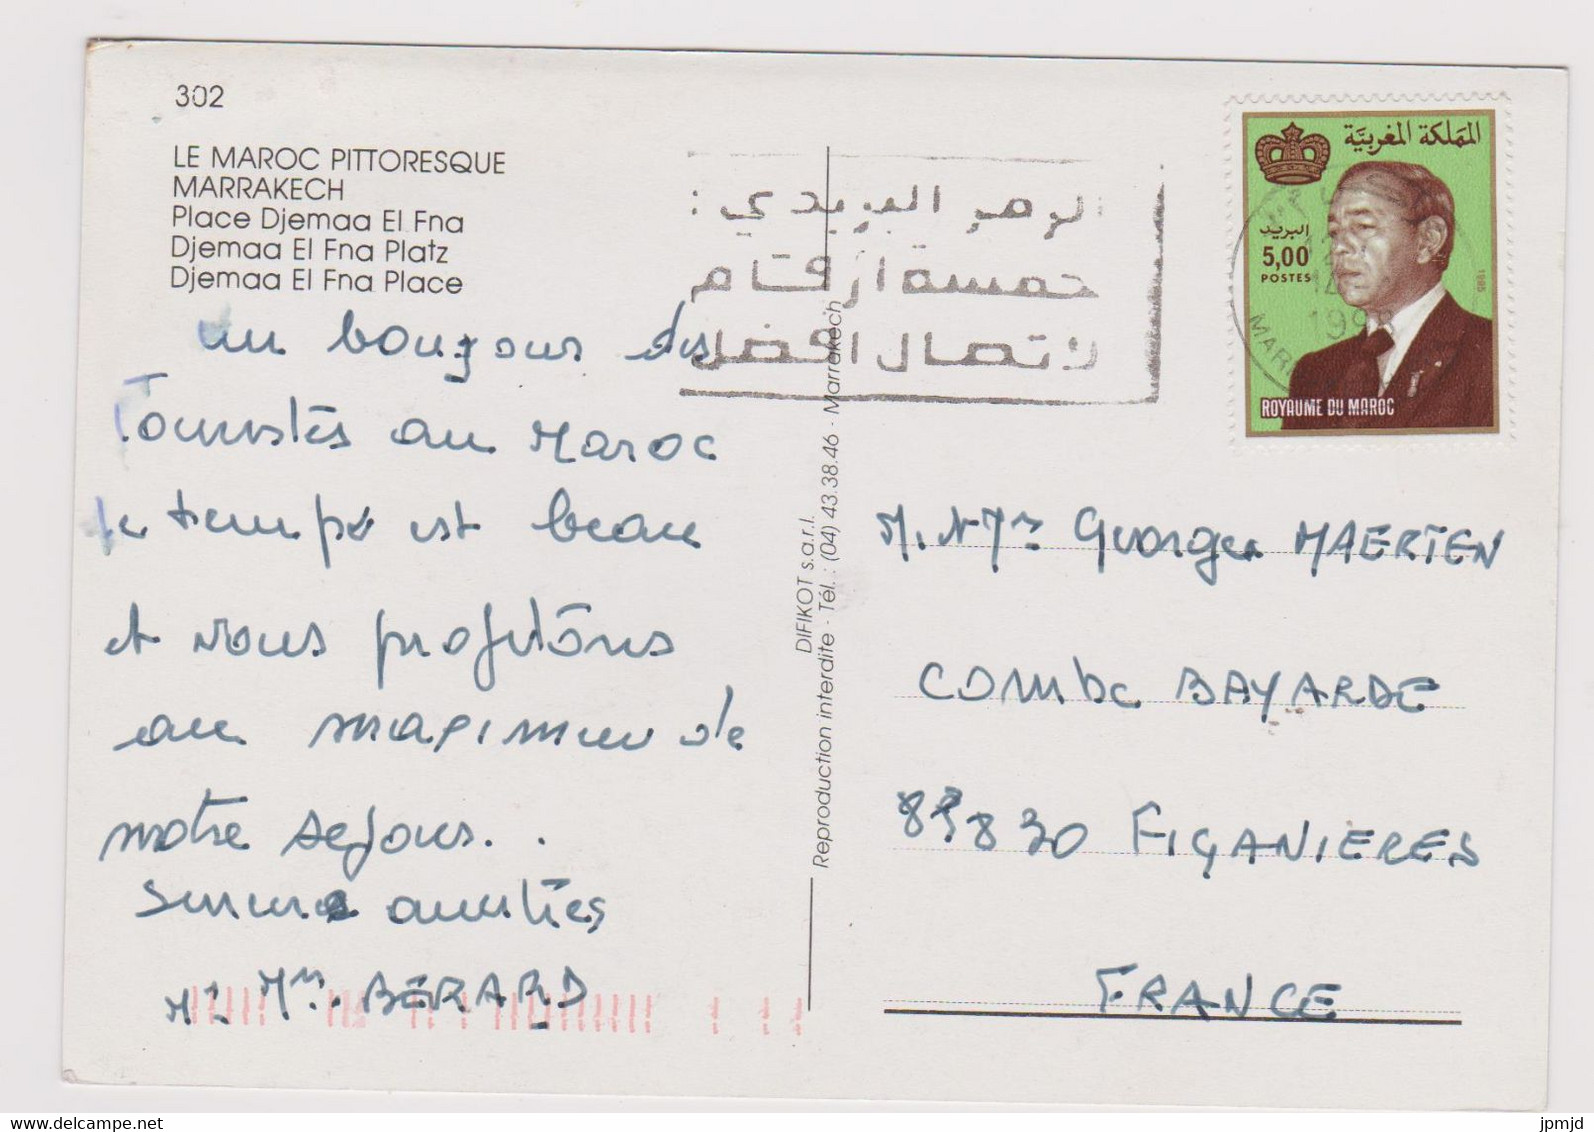 302
LE MAROC PITTORESQUE
MARRAKECH
Place Djemaa El Fna
Djemaa El Fna Platz
Djemaa El Fna Place
un bonjour des
Touristes au Maroc
Le temps est beau
et nous profitons
au maximum de
notre séjour..
amitiés
Mme. BÉRARD
DIFIKOT s.a.r.l.
Reproduction interdite - Tél. : (04) 43.38.46 - Marrakech
البريدي :
خمسة أرقام
لاتصال افضل
المملكة المغربية
البريد
5,00
POSTES
1985
ROYAUME DU MAROC
M. Mme Georges MAERTEN
COMbe BAYARDE
83830 FIGANIERES
FRANCE
jpmjd